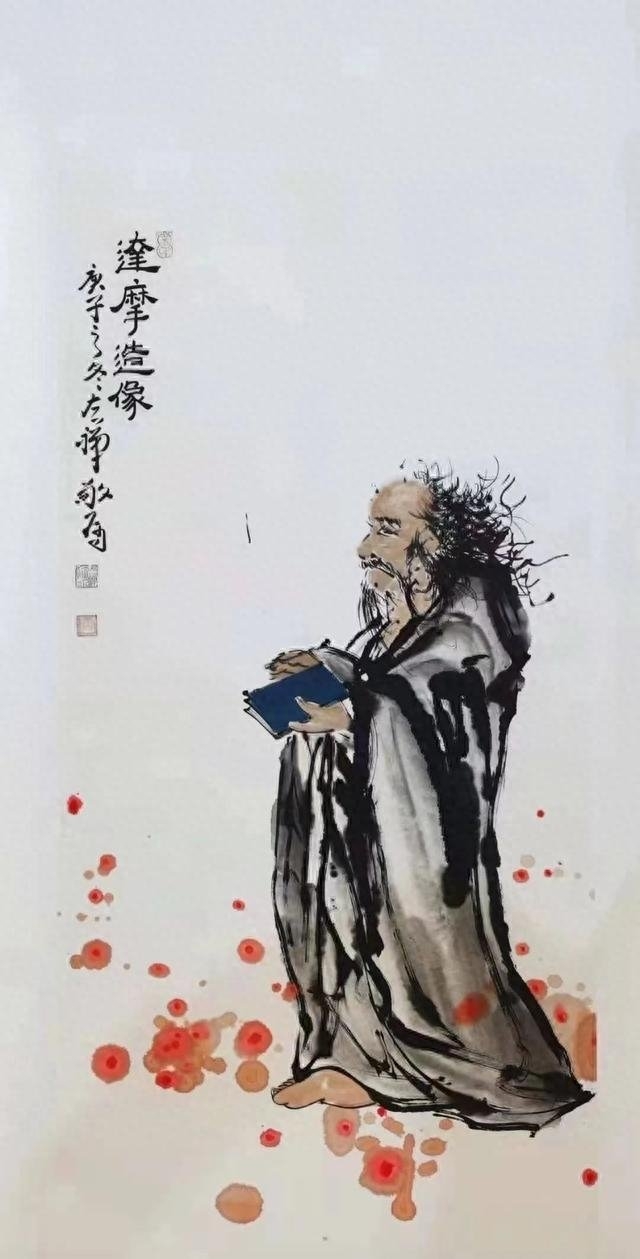 達摩造像
庚子之冬左禅敬为